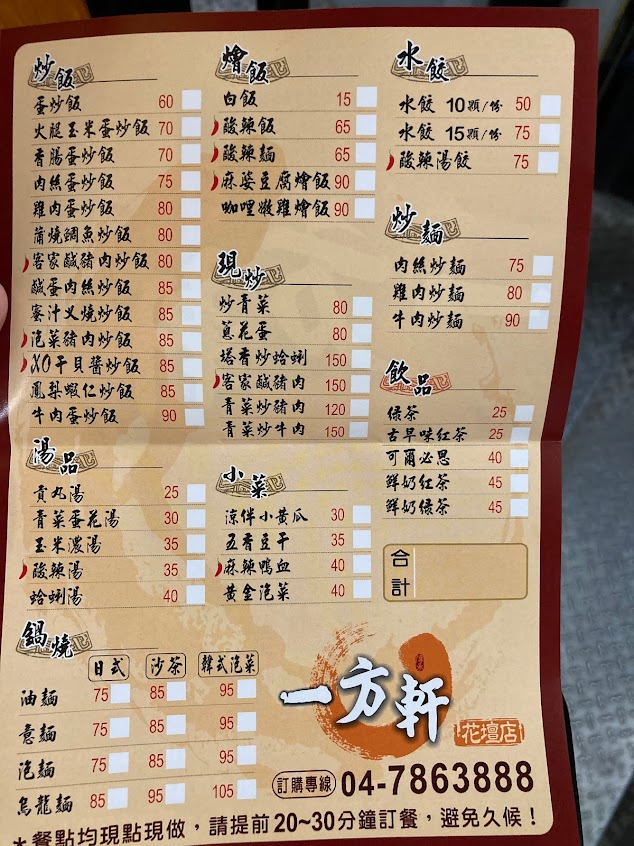 炒飯
蛋炒飯 60
火腿玉米蛋炒飯 70
香腸蛋炒飯 70
肉絲蛋炒飯 75
雞肉蛋炒飯 80
蒲燒鯛魚炒飯 80
客家鹹豬肉炒飯 80
鹹蛋肉絲炒飯 85
蜜汁叉燒炒飯 85
泡菜豬肉炒飯 85
XO干貝醬炒飯 85
鳳梨蝦仁炒飯 85
牛肉蛋炒飯 90
湯品
貢丸湯 25
青菜蛋花湯 30
玉米濃湯 35
酸辣湯 35
蛤蜊湯 40
燴飯
白飯 15
酸辣飯 65
酸辣麵 65
麻婆豆腐燴飯 90
咖哩嫩雞燴飯 90
現炒
炒青菜 80
蔥花蛋 80
塔香炒蛤蜊 150
客家鹹豬肉 150
青菜炒豬肉 120
青菜炒牛肉 150
小菜
涼伴小黃瓜 30
五香豆干 35
麻辣鴨血 40
黃金泡菜 40
水餃
水餃 10顆/份 50
水餃 15顆/份 75
酸辣湯餃 75
炒麵
肉絲炒麵 75
雞肉炒麵 80
牛肉炒麵 90
飲品
綠茶 25
古早味紅茶 25
可爾必思 40
鮮奶紅茶 45
鮮奶綠茶 45
合計
鍋燒
日式 沙茶 韓式泡菜
油麵 75 85 95
意麵 75 85 95
泡麵 75 85 95
烏龍麵 85 95 105
一方軒
花壇店
訂購專線 04-7863888
*餐點均現點現做,請提前20~30分鐘訂餐,避免久候!